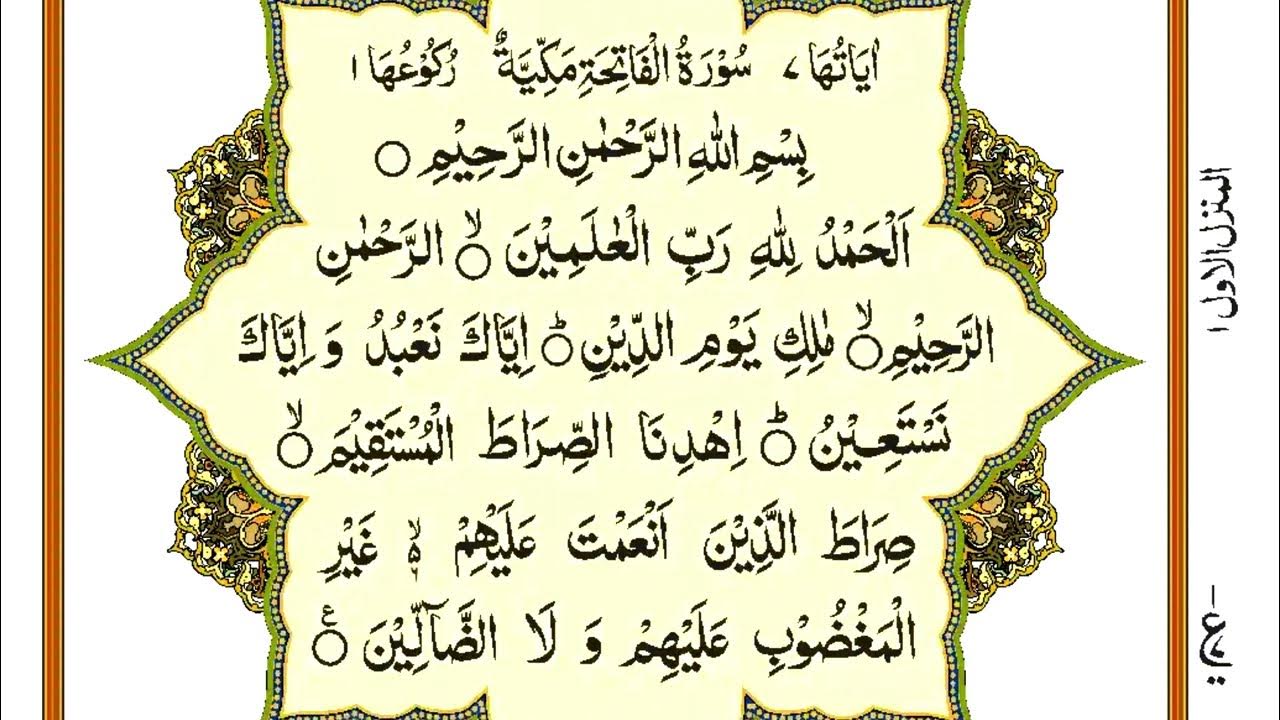 اٰیَاتُهَا ٧ سُوْرَةُ الْفَاتِحَةِ مَكِّيَّةٌ رُكُوْعُهَا ١
بِسْمِ اللّٰهِ الرَّحْمٰنِ الرَّحِيْمِ ○
اَلْحَمْدُ لِلّٰهِ رَبِّ الْعٰلَمِيْنَ ○ۙ الرَّحْمٰنِ
الرَّحِيْمِ ○ۙ مٰلِكِ يَوْمِ الدِّيْنِ ○ؕ اِيَّاكَ نَعْبُدُ وَ اِيَّاكَ
نَسْتَعِيْنُ ○ؕ اِهْدِنَا الصِّرَاطَ الْمُسْتَقِيْمَ ○ۙ
صِرَاطَ الَّذِيْنَ اَنْعَمْتَ عَلَيْهِمْ ۙ۬ غَيْرِ
الْمَغْضُوْبِ عَلَيْهِمْ وَ لَا الضَّآلِّيْنَ ○ع
المنزل الاول ١
ع